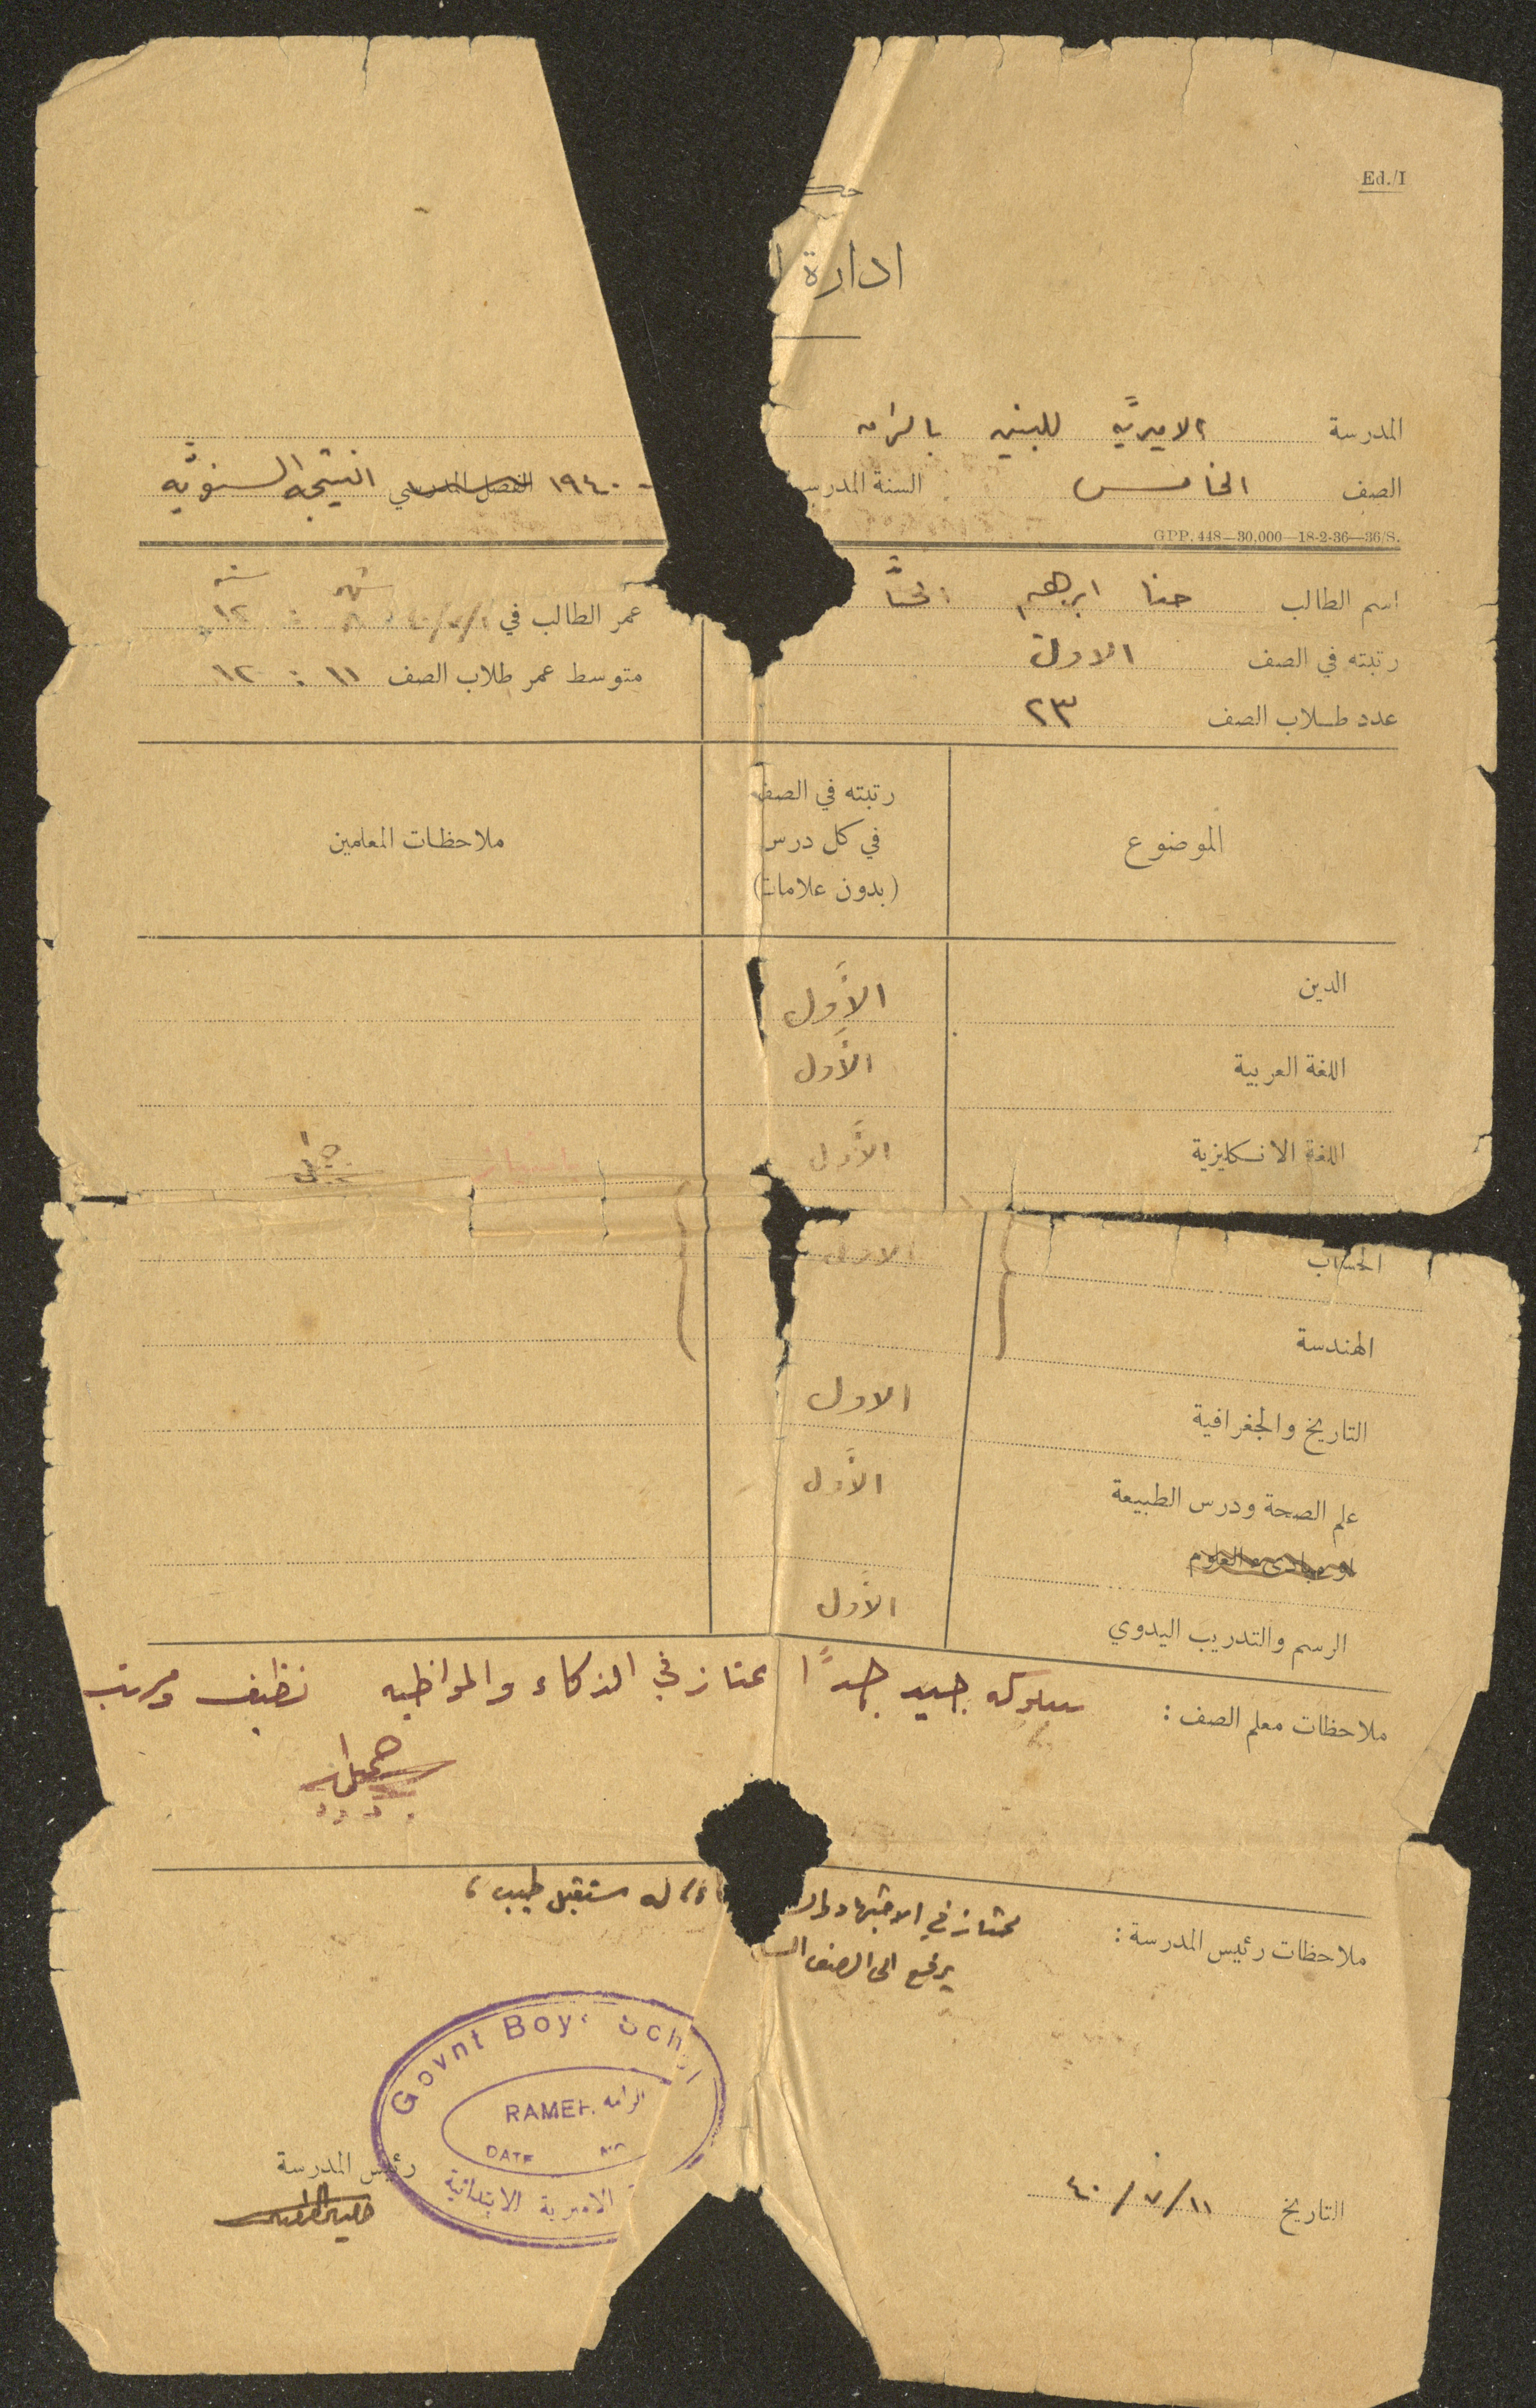 Ed./I
ادارة
المدرسة الاميريّة للبنين بالرامه
الصف الخامس السنة المدرسية ١٩٤٠ الفصل المدرسي النتيجه السنويّه
GPP. 448—30,000—18-2-36—36/S.
اسم الطالب حنا ابرهيم
عمر الطالب في ١/٧/٤٠ ٨ شهر : ١٢ سنه
رتبته في الصف الاول
متوسط عمر طلاب الصف ١١ : ١٢
عدد طلاب الصف ٢٣
الموضوع
رتبته في الصف
في كل درس
(بدون علامات)
ملاحظات المعلمين
الدين الأول
اللغة العربية الأول
اللغة الانكليزية الأول
الحساب الاول
الهندسة
التاريخ والجغرافية الاول
علم الصحة ودرس الطبيعة الأول
او مبادىء العلوم
الرسم والتدريب اليدوي الأول
ملاحظات معلم الصف : سلوكه جيد جداً ممتاز في الذكاء والمواظبه نظيف ومرتب
ملاحظات رئيس المدرسة : ممتاز في الاجتهاد له مستقبل طيب
يرفع الى الصف
Govnt Boys School
RAMEH الرامه
DATE
الاميرية الابتدائية
رئيس المدرسة
التاريخ ١١/٧/٤٠